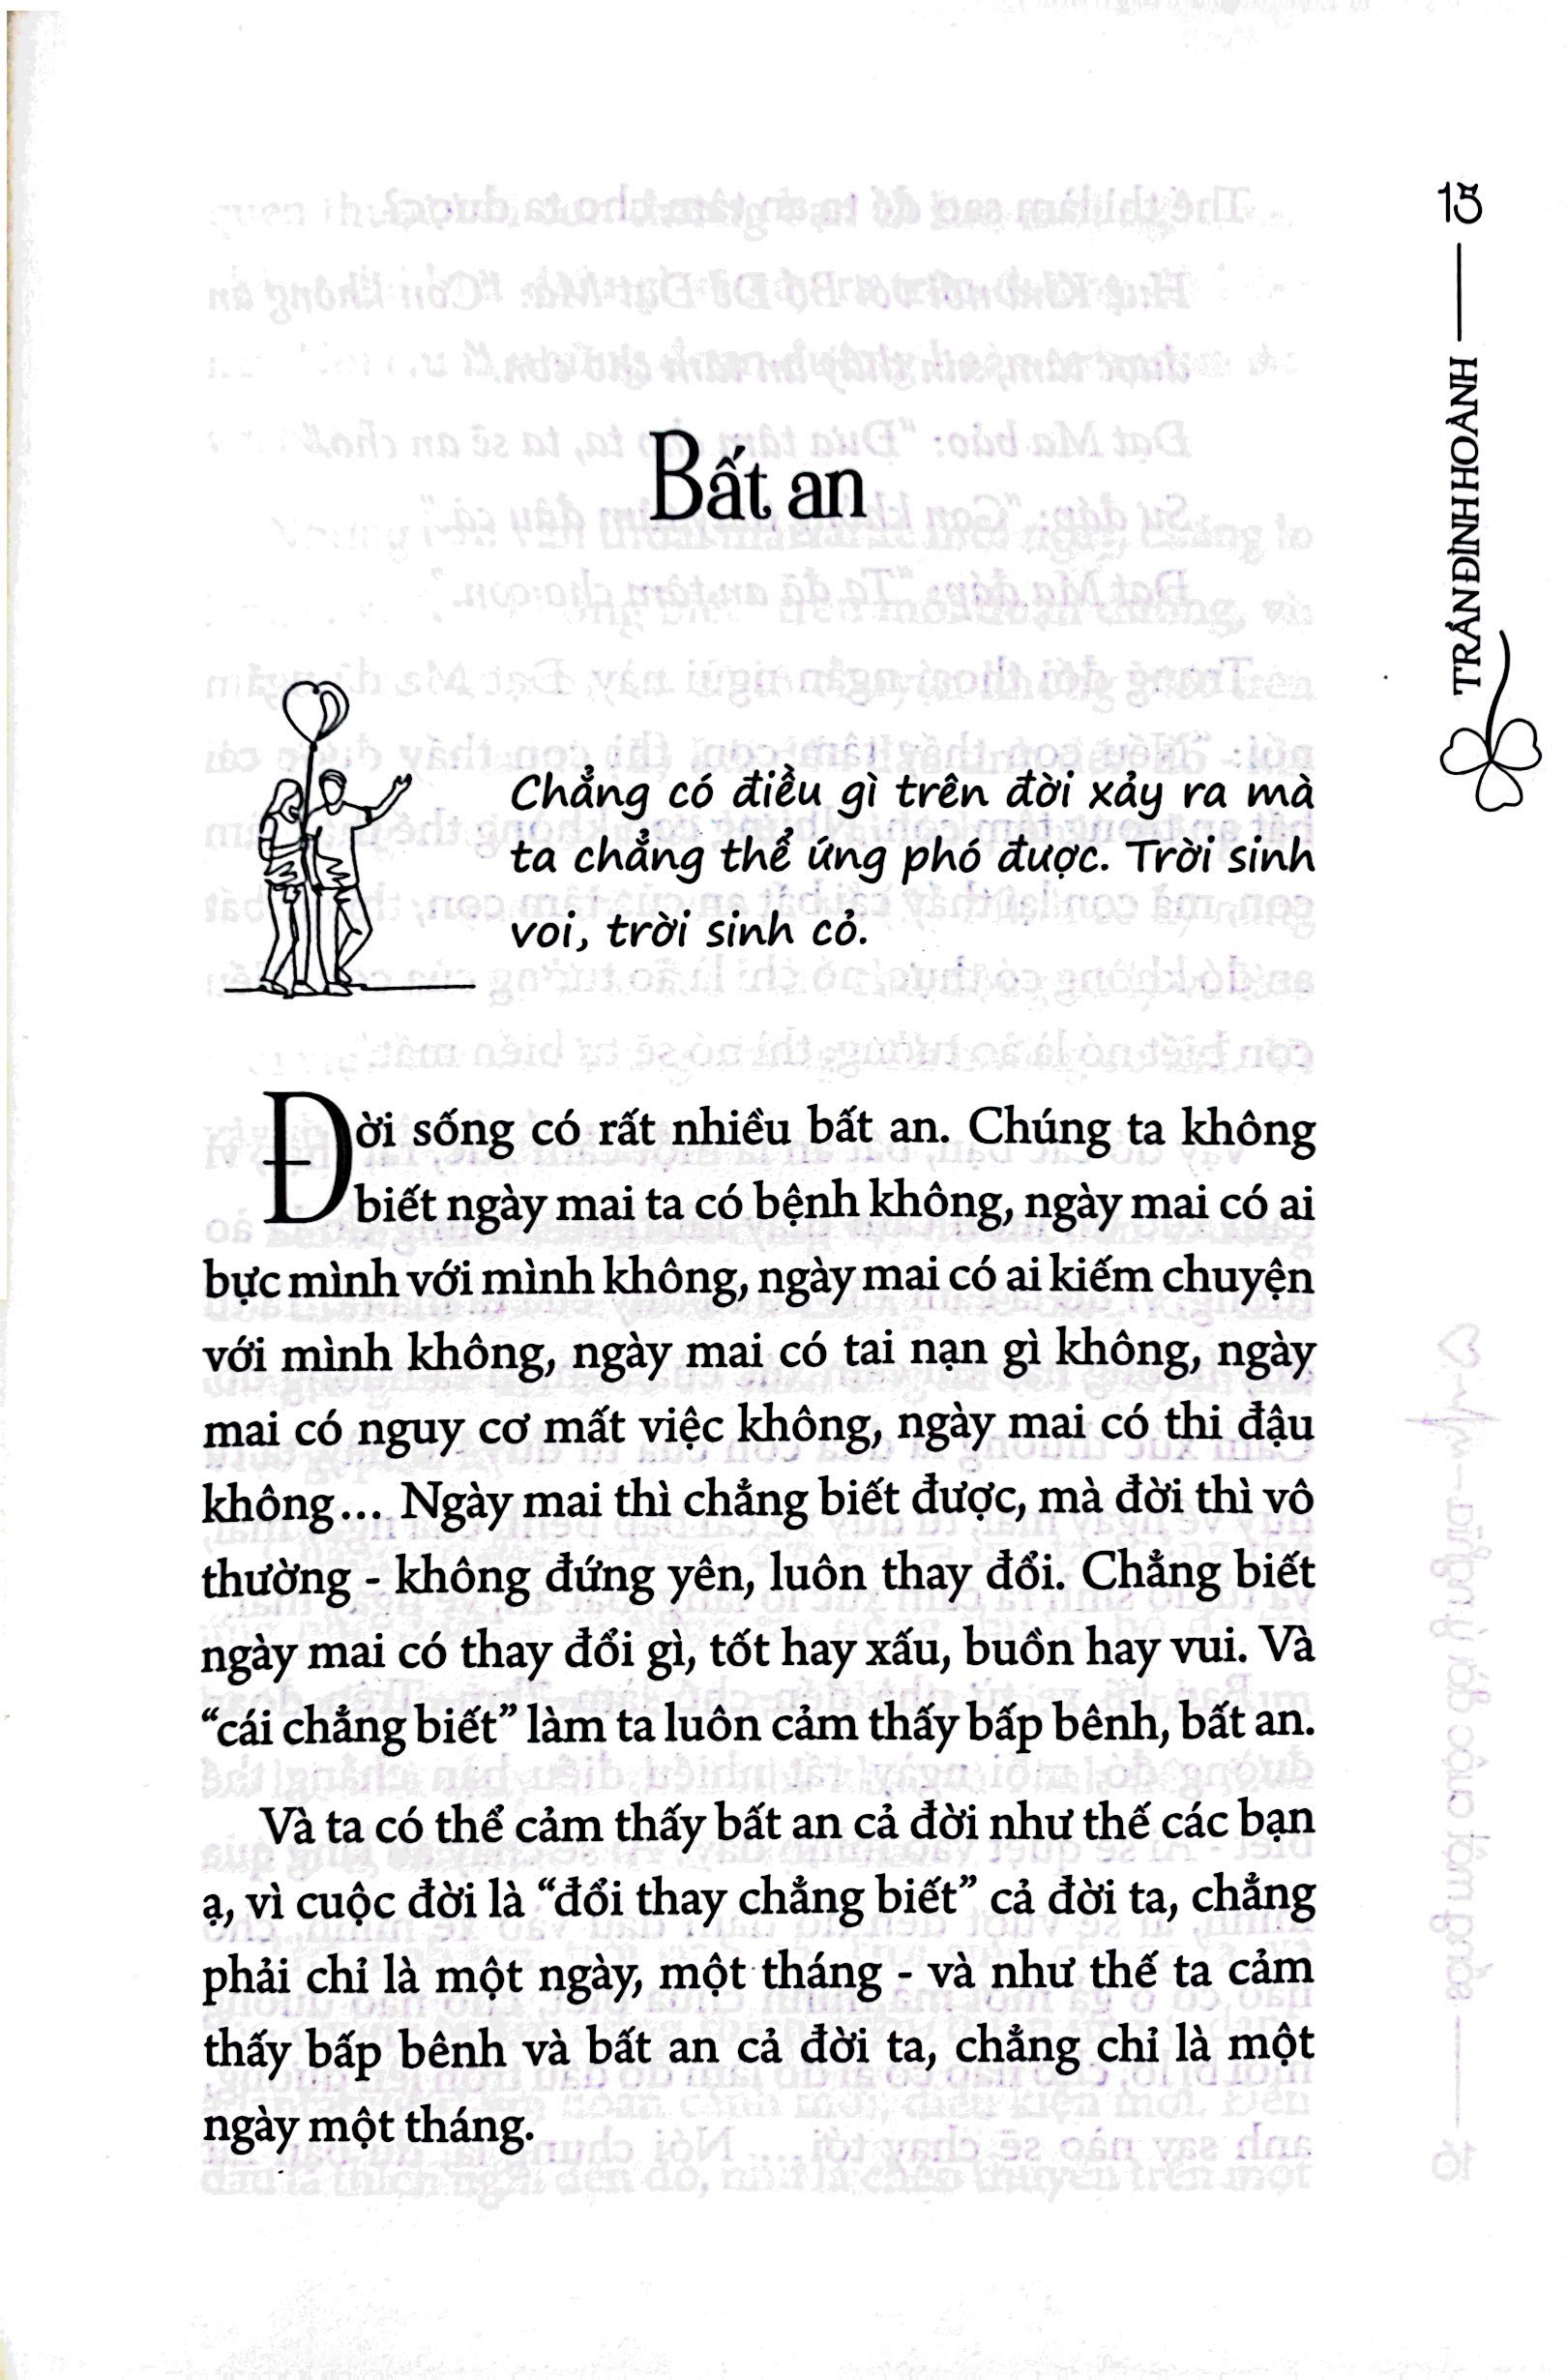 15
TRẦN ĐÌNH HOÀNH
Bất an
Chẳng có điều gì trên đời xảy ra mà
ta chẳng thể ứng phó được. Trời sinh
voi, trời sinh cỏ.
Đời sống có rất nhiều bất an. Chúng ta không
biết ngày mai ta có bệnh không, ngày mai có ai
bực mình với mình không, ngày mai có ai kiếm chuyện
với mình không, ngày mai có tai nạn gì không, ngày
mai có nguy cơ mất việc không, ngày mai có thi đậu
không... Ngày mai thì chẳng biết được, mà đời thì vô
thường - không đứng yên, luôn thay đổi. Chẳng biết
ngày mai có thay đổi gì, tốt hay xấu, buồn hay vui. Và
“cái chẳng biết” làm ta luôn cảm thấy bấp bênh, bất an.
Và ta có thể cảm thấy bất an cả đời như thế các bạn
ạ, vì cuộc đời là “đổi thay chẳng biết” cả đời ta, chẳng
phải chỉ là một ngày, một tháng - và như thế ta cảm
thấy bấp bênh và bất an cả đời ta, chẳng chỉ là một
ngày một tháng.